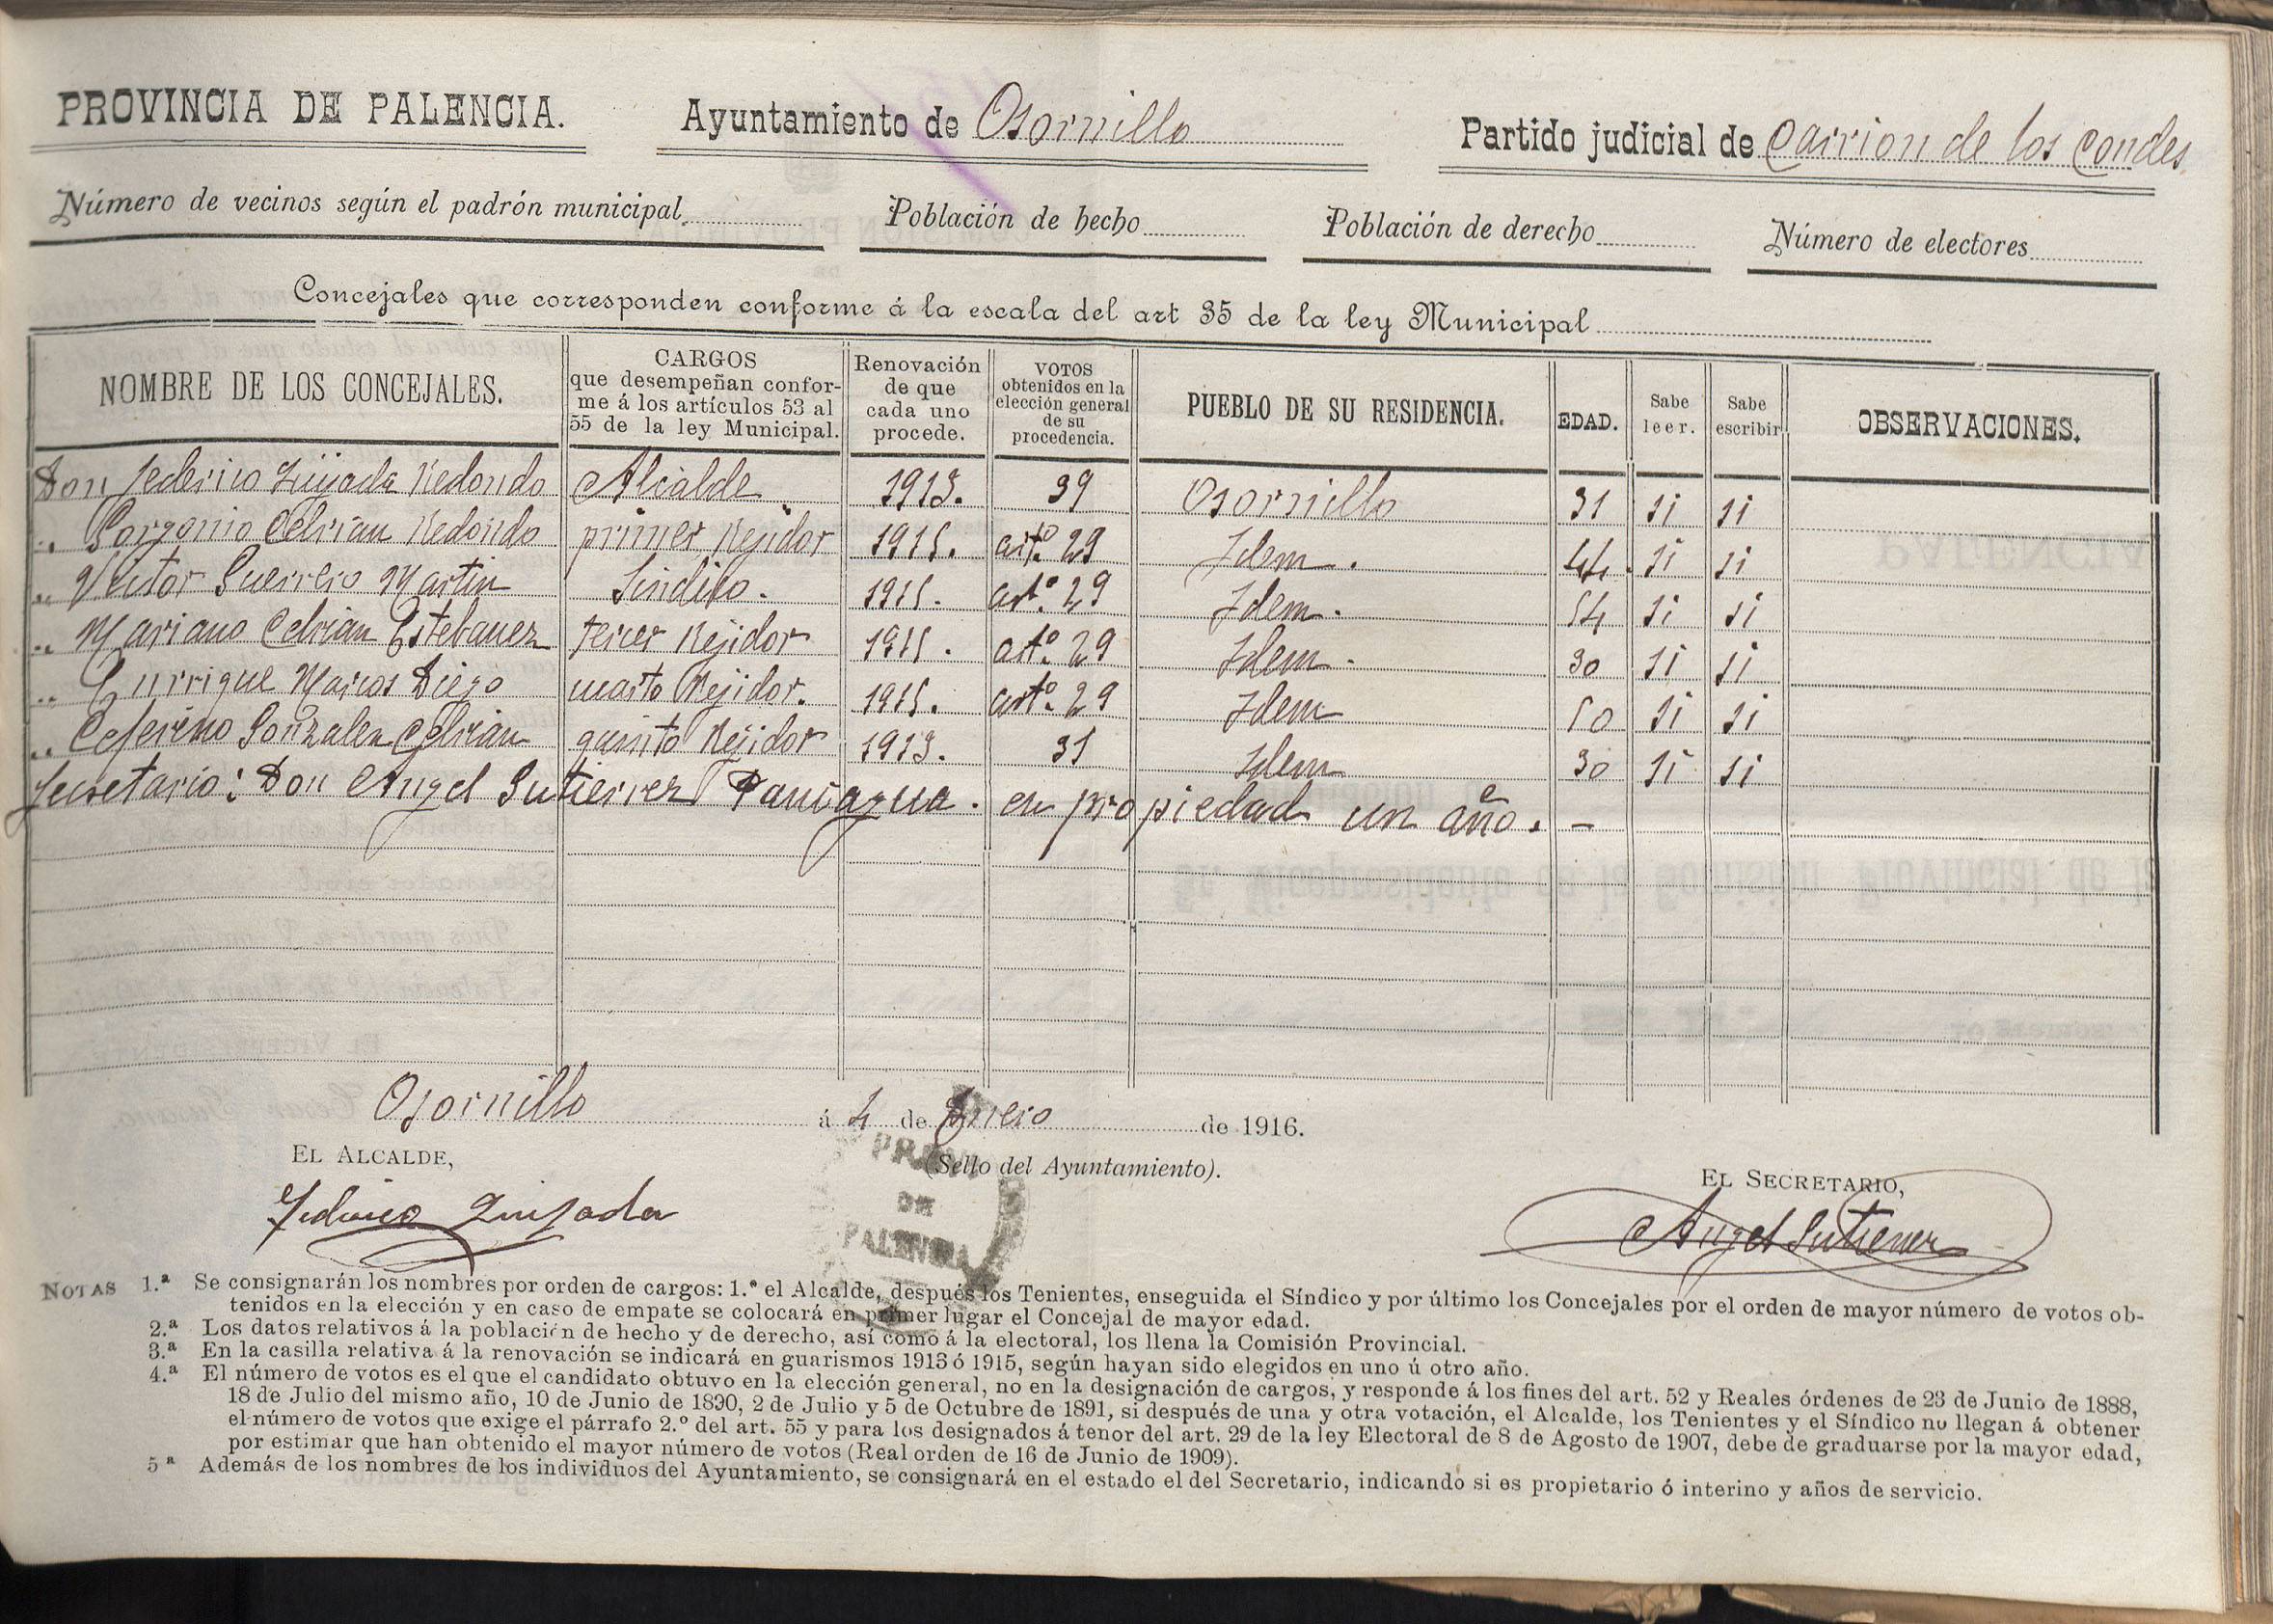 PROVINCIA DE PALENCIA. Ayuntamiento de Osornillo Partido judicial de Carrion de los Condes
Número de vecinos según el padrón municipal Población de hecho Población de derecho Número de electores
Concejales que corresponden conforme á la escala del art 35 de la ley Municipal
NOMBRE DE LOS CONCEJALES. CARGOS que desempeñan confor-me á los artículos 53 al 55 de la ley Municipal. Renovación de que cada uno procede. VOTOS obtenidos en la elección general de su procedencia. PUEBLO DE SU RESIDENCIA. EDAD. Sabe leer. Sabe escribir OBSERVACIONES.
Don Federico Quijada Redondo Alcalde 1913. 39 Osornillo 31 si si
„ Gorgonio Cebrian Redondo primer Rejidor 1915. artº. 29 Idem. 44. si si
„ Victor Guerrero Martin Sindico. 1915. artº. 29 Idem. 54 si si
„ Mariano Cebrian Estebanez tercer Rejidor 1915. artº. 29 Idem. 30 si si
„ Enrrique Marcos Diego cuarto Rejidor. 1915. artº. 29 Idem 50 si si
„ Ceferino Gonzalez Cebrian quinto Rejidor 1913. 31 Idem 30 si si
Secretario: Don Angel Gutierrez en propiedad un año. –
Osornillo á 4 de Enero de 1916.
EL ALCALDE, (Sello del Ayuntamiento). EL SECRETARIO,
Federico Quijada Angel Gutierrez
DE
PALENCIA
NOTAS 1.ª Se consignarán los nombres por orden de cargos: 1.º el Alcalde, después los Tenientes, enseguida el Síndico y por último los Concejales por el orden de mayor número de votos ob-
tenidos en la elección y en caso de empate se colocará en primer lugar el Concejal de mayor edad.
2.ª Los datos relativos á la población de hecho y de derecho, así como á la electoral, los llena la Comisión Provincial.
3.ª En la casilla relativa á la renovación se indicará en guarismos 1913 ó 1915, según hayan sido elegidos en uno ú otro año.
4.ª El número de votos es el que el candidato obtuvo en la elección general, no en la designación de cargos, y responde á los fines del art. 52 y Reales órdenes de 23 de Junio de 1888,
18 de Julio del mismo año, 10 de Junio de 1890, 2 de Julio y 5 de Octubre de 1891, si después de una y otra votación, el Alcalde, los Tenientes y el Síndico no llegan á obtener
el número de votos que exige el párrafo 2.º del art. 55 y para los designados á tenor del art. 29 de la ley Electoral de 8 de Agosto de 1907, debe de graduarse por la mayor edad,
por estimar que han obtenido el mayor número de votos (Real orden de 16 de Junio de 1909).
5ª Además de los nombres de los individuos del Ayuntamiento, se consignará en el estado el del Secretario, indicando si es propietario ó interino y años de servicio.